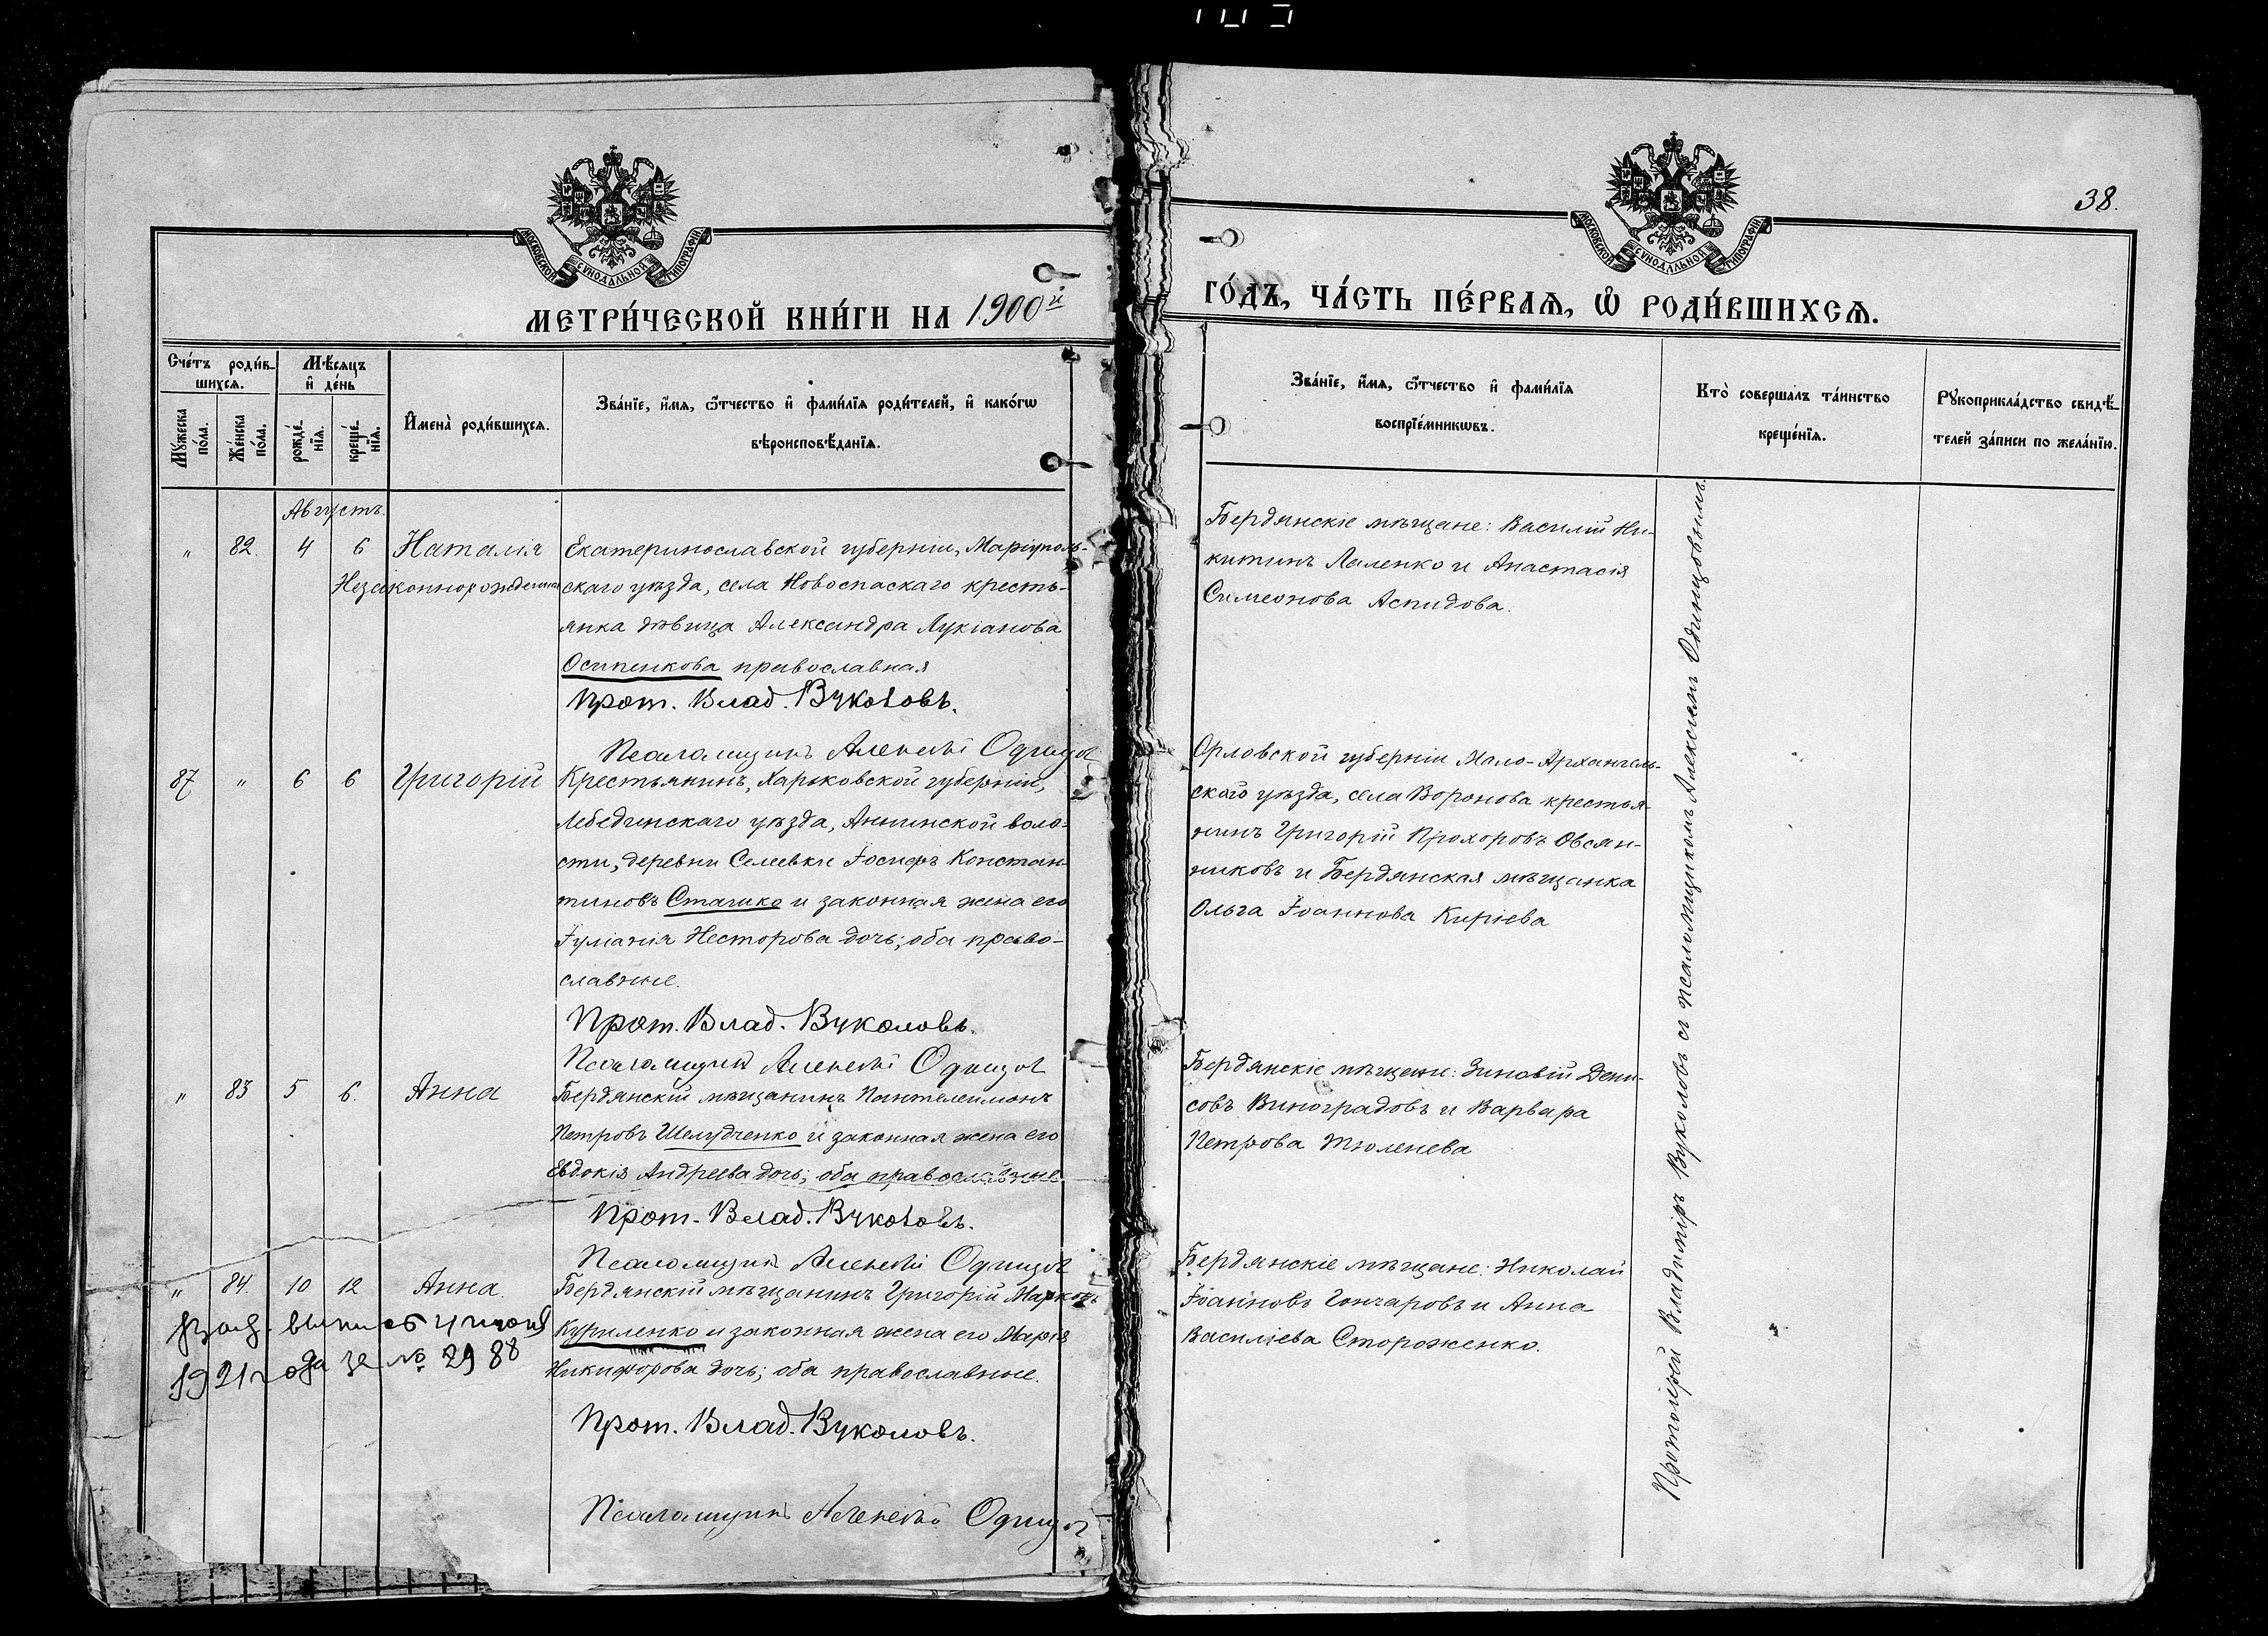 38.
МОСКОВСКОЙ СѴНОДАЛЬНОЙ ТИПОГРАФІИ
МОСКОВСКОЙ СѴНОДАЛЬНОЙ ТИПОГРАФІИ
МЕТРИ́ЧЕСКОЙ КНИ́ГИ НА 1900й
ГО́ДЪ, ЧА́СТЬ ПЕ́РВАѦ, Ѡ РОДИ́ВШИХСѦ.
Сче́тъ роди́в-
шихсѧ.
Мѣсѧцъ
и де́нь
Мꙋжеска
по́ла.
Же́нска
по́ла.
рожде́-
нїѧ.
креще́-
нїѧ.
Имена̀ роди́вшихсѧ.
Зва́нїе, и́мѧ, ѻ́тчество и фами́лїѧ роди́телей, и како́гѡ
вѣроисповѣ́данїѧ.
Зва́нїе, и́мѧ, ѻ́тчество и фами́лїѧ
воспрїе́мникѡвъ.
Кто̀ соверша́лъ та́инство
креще́нїѧ.
Рꙋкоприкла́дство свидѣ́-
телей за́писи по жела́нїю.
Августъ.
„ 82. 4 6 Наталія
Незаконнорожденная
Екатеринославской губерніи, Маріуполь-
скаго уѣзда, села Новоспаскаго кресть-
янка дѣвица Александра Лукіанова
Осипенкова православная
Прот. Влад. Вуколовъ.
Псаломщикъ Алексѣй Одинцов
Бердянскіе мѣщане: Василій Ни-
китинъ Ляленко и Анастасія
Симеонова Аспидова.
87 „ 6 6 Григорій
Крестьянинъ, Харьковской губерніи,
Лебединскаго уѣзда, Аннинской воло-
сти, деревни Селеевки Іосифъ Констан-
тиновъ Сташко и законная жена его
Іуліанія Несторова дочь; оба право-
славные.
Прот. Влад. Вуколовъ.
Псаломщикъ Алексѣй Одинцов
Орловской губерніи Мало-Архангель-
скаго уѣзда, села Воронова крестья-
нинъ Григорій Прохоровъ Овсян-
никовъ и Бердянская мѣщанка
Ольга Іоаннова Киріева
„ 83 5 6. Анна
Бердянскій мѣщанинъ Пантелеимонъ
Петровъ Шелудченко и законная жена его
Евдокія Андреева дочь; оба православные
Прот. Влад. Вуколовъ.
Псаломщикъ Алексѣй Одинцов
Бердянскіе мѣщане: Зиновій Дени-
совъ Виноградовъ и Варвара
Петрова Тюленева
„ 84. 10 12 Анна.
Бердянскій мѣщанинъ Григорій Марковъ
Куриленко и законная жена его Марія
Никифорова дочь; оба православные.
Прот. Влад. Вуколовъ.
Псаломщикъ Алексѣй Одинцов
выпись 4 июня
1921 года за № 2988
Бердянскіе мѣщане: Николай
Іоанновъ Гончаровъ и Анна
Василіева Стороженко.
Протоіерей Владиміръ Вуколовъ съ псаломщикомъ Алексѣемъ Одинцовымъ.